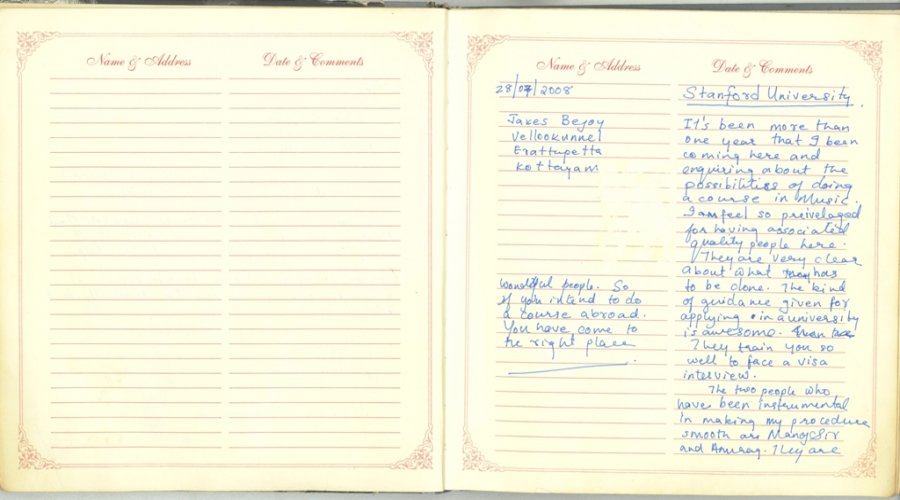 Name & Address
Date & Comments
Name & Address
Date & Comments
28/07/2008
Jakes Bejoy
Vellookunnel
Erattupetta
Kottayam
Stanford University.
It's been more than
one year that I been
coming here and
enquiring about the
possibilities of doing
a course in Music.
I am feel so preivelaged
for having associated
quality people here.
They are very clear
about what has
to be done. The kind
of guidance given for
applying in a university
is awesome.
They train you so
well to face a visa
interview.
The two people who
have been instrumental
in making my procedure
smooth are Manoj Sir
and Anurag. They are
wonderful people. So
if you intend to do
a course abroad.
You have come to
the right place